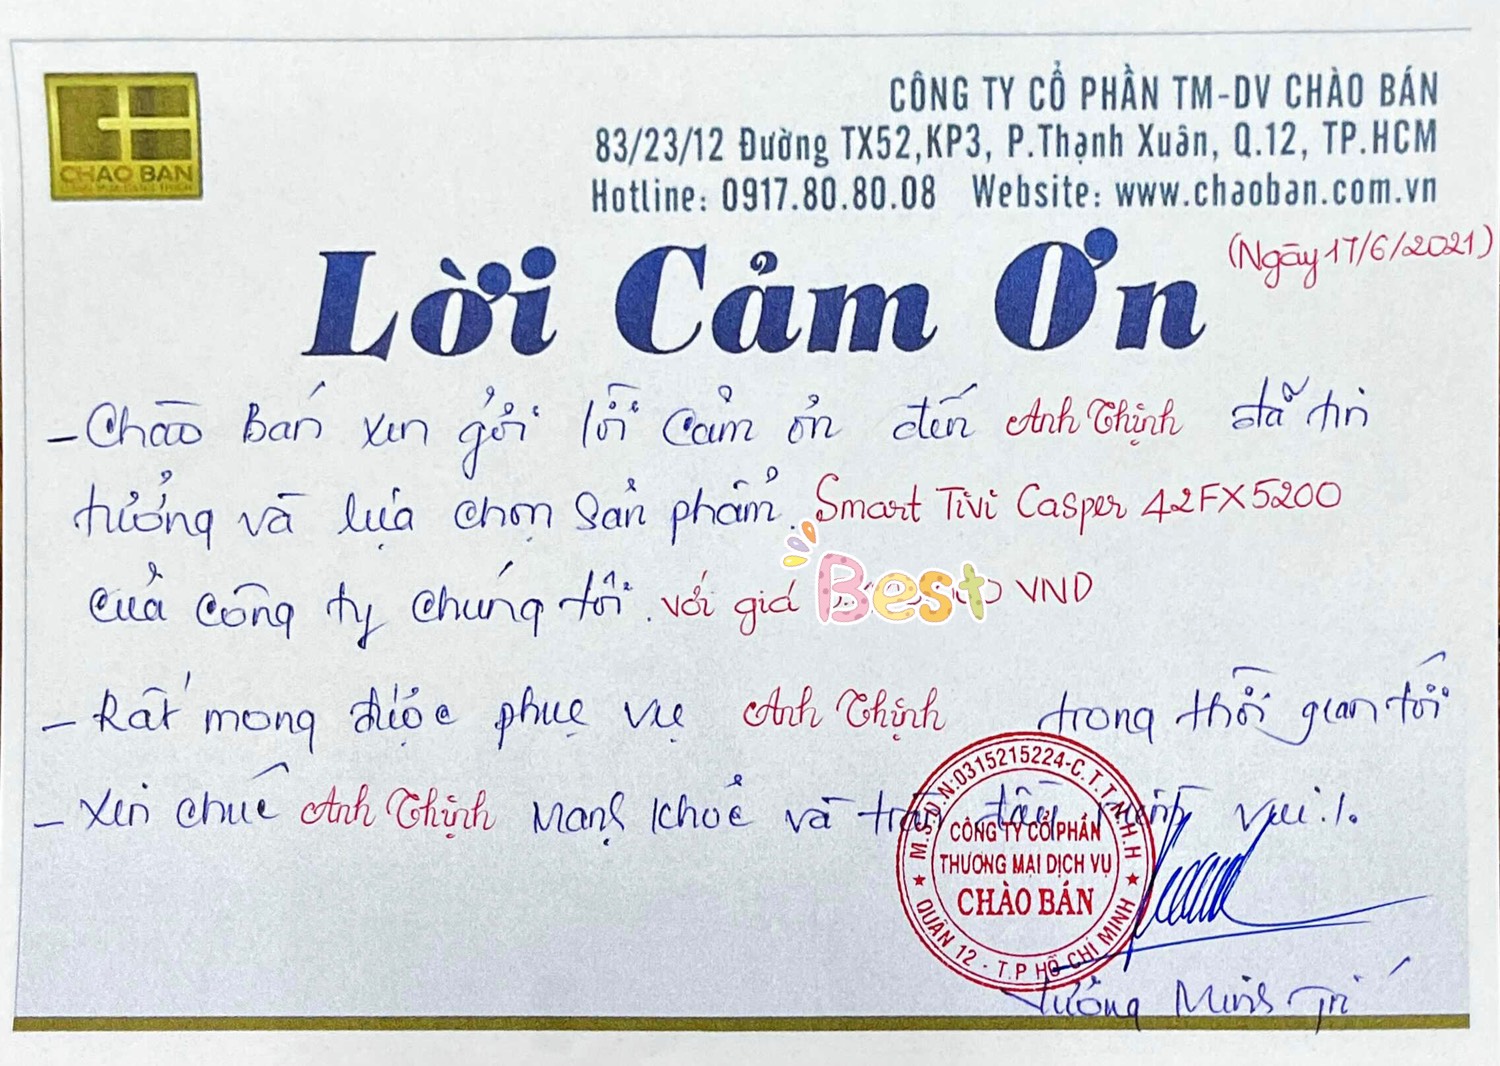 CHAO BAN
CÔNG TY CỔ PHẦN TM-DV CHÀO BÁN
83/23/12 Đường TX52,KP3, P.Thạnh Xuân, Q.12, TP.HCM
Hotline: 0917.80.80.08 Website: www.chaoban.com.vn
Lời Cảm Ơn
(Ngày 17/6/2021)
- Chào Bán xin gởi lời cảm ơn đến Anh Thịnh đã tin
tưởng và lựa chọn sản phẩm. Smart Tivi Casper 42FX5200
của công ty chúng tôi. với giá Best VND
- Rất mong được phục vụ Anh Thịnh trong thời gian tới
- Xin chúc Anh Thịnh mạnh khoẻ và tràn đầy niềm vui./.
M.S.D.N:0315215224-C.T.T.N.H.H
CÔNG TY CỔ PHẦN
THƯƠNG MẠI DỊCH VỤ
CHÀO BÁN
QUẬN 12 - T.P HỒ CHÍ MINH
Minh Trí